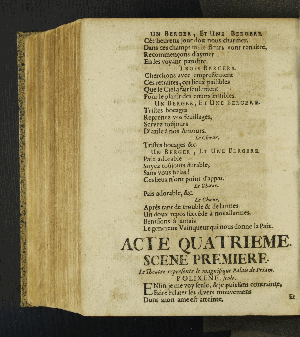 UN BERGER, ET UNE BERGERE.
Cet heureux jour doit nous charmer.
Dans ces champs mille fleurs vont renaître,
Recommençons d'aymer
En les voyant paraître.
TROIS BERGERS.
Cherchons avec empressement
Ces retraites, ces lieux paisibles
Que le Ciel a fait seulement
Pour le plaisir des cœurs sensibles.
UN BERGER, ET UNE BERGERE.
Tristes bocages
Reprenez vos feuillages,
Servez toujours
D'asile à nos Amours.
Le Chœur.
Tristes bocages &c.
UN BERGER, ET UNE BERGERE.
Paix adorable
Soyez toujours durable,
Sans vous helas!
Ces lieux n'ont point d'appas.
Le Chœur.
Paix adorable, &c.
Le Chœur.
Après tant de trouble & d'allarmes
Un doux repos succede à nos allarmes.
Benissons à jamais
Le genereux Vainqueur qui nous donne la Paix.
ACTE QUATRIEME.
SCENE PREMIERE.
Le Theatre represente le magnifique Palais de Priam.
POLIXENE, seule.
ENfin je me voy seule, & je puis sans contrainte,
Faire éclater les divers mouvemens
Dont mon ame est atteinte,
Et